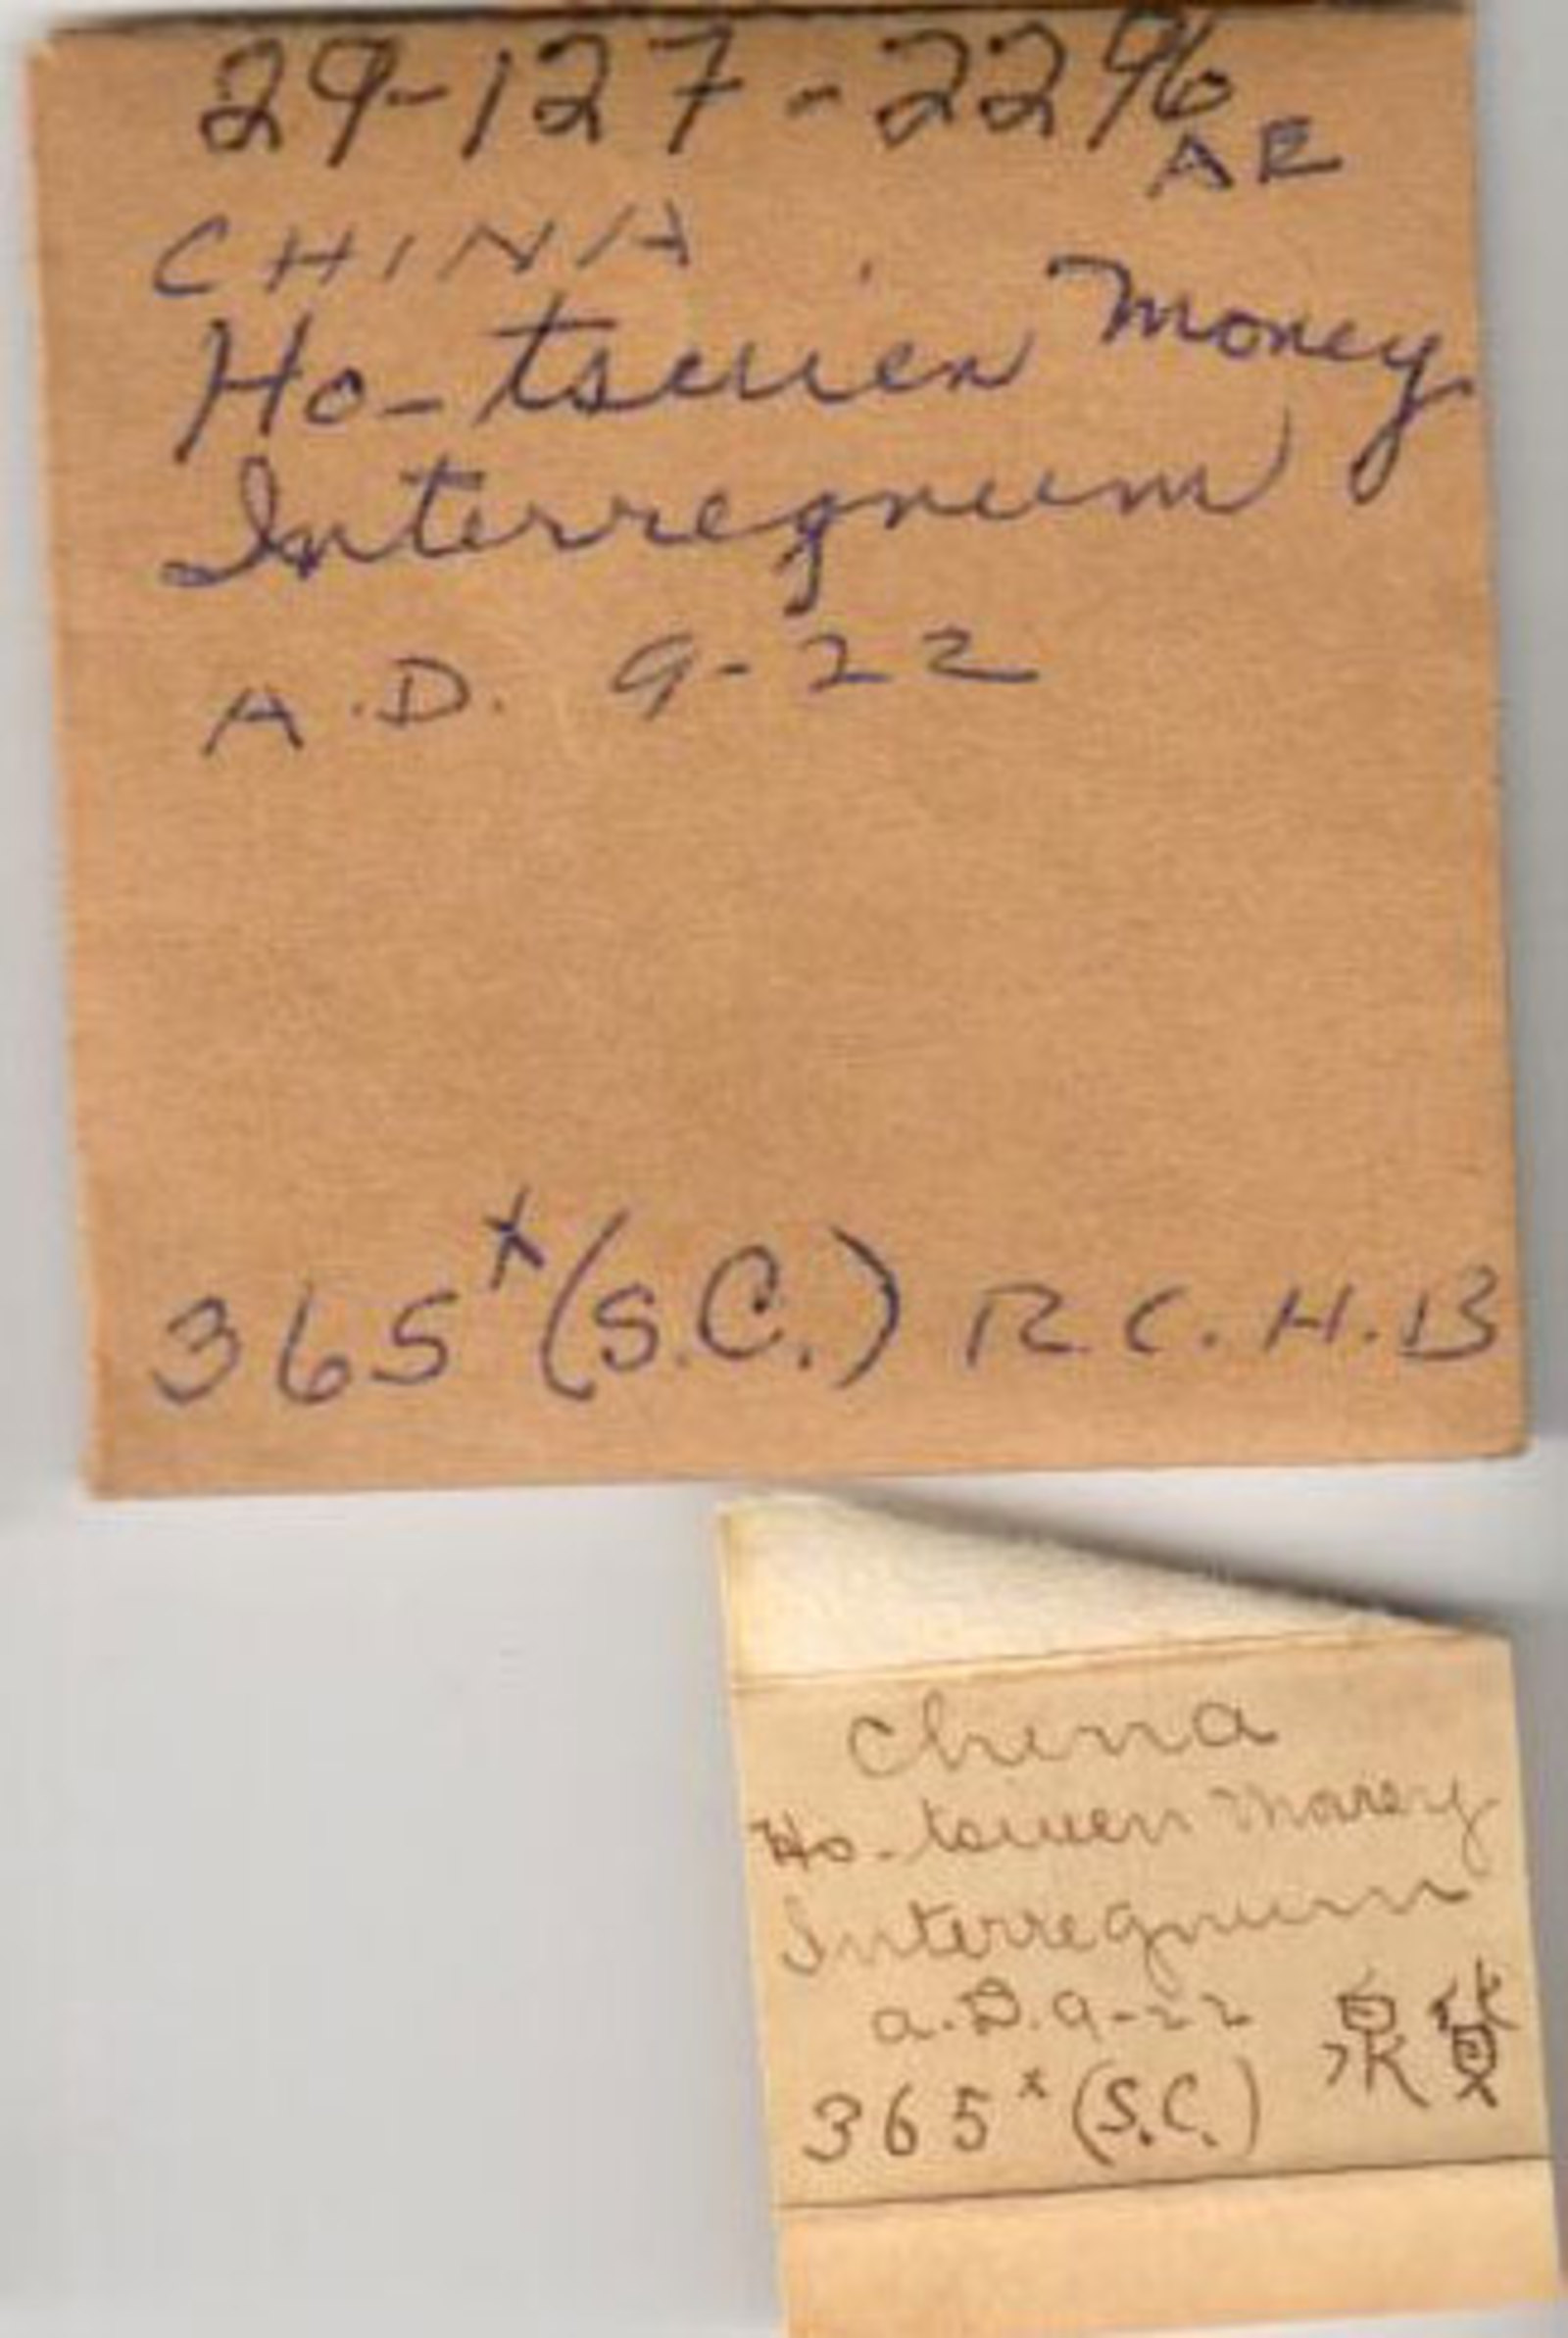 29-127-2296
AE
CHINA
Ho-tsuien Money
Interregnum
A.D. 9-22
365* (S.C.) R.C.H.B
China
Ho-tsuen Money
Interregnum
a.D. 9-22
泉貨
365* (S.C.)